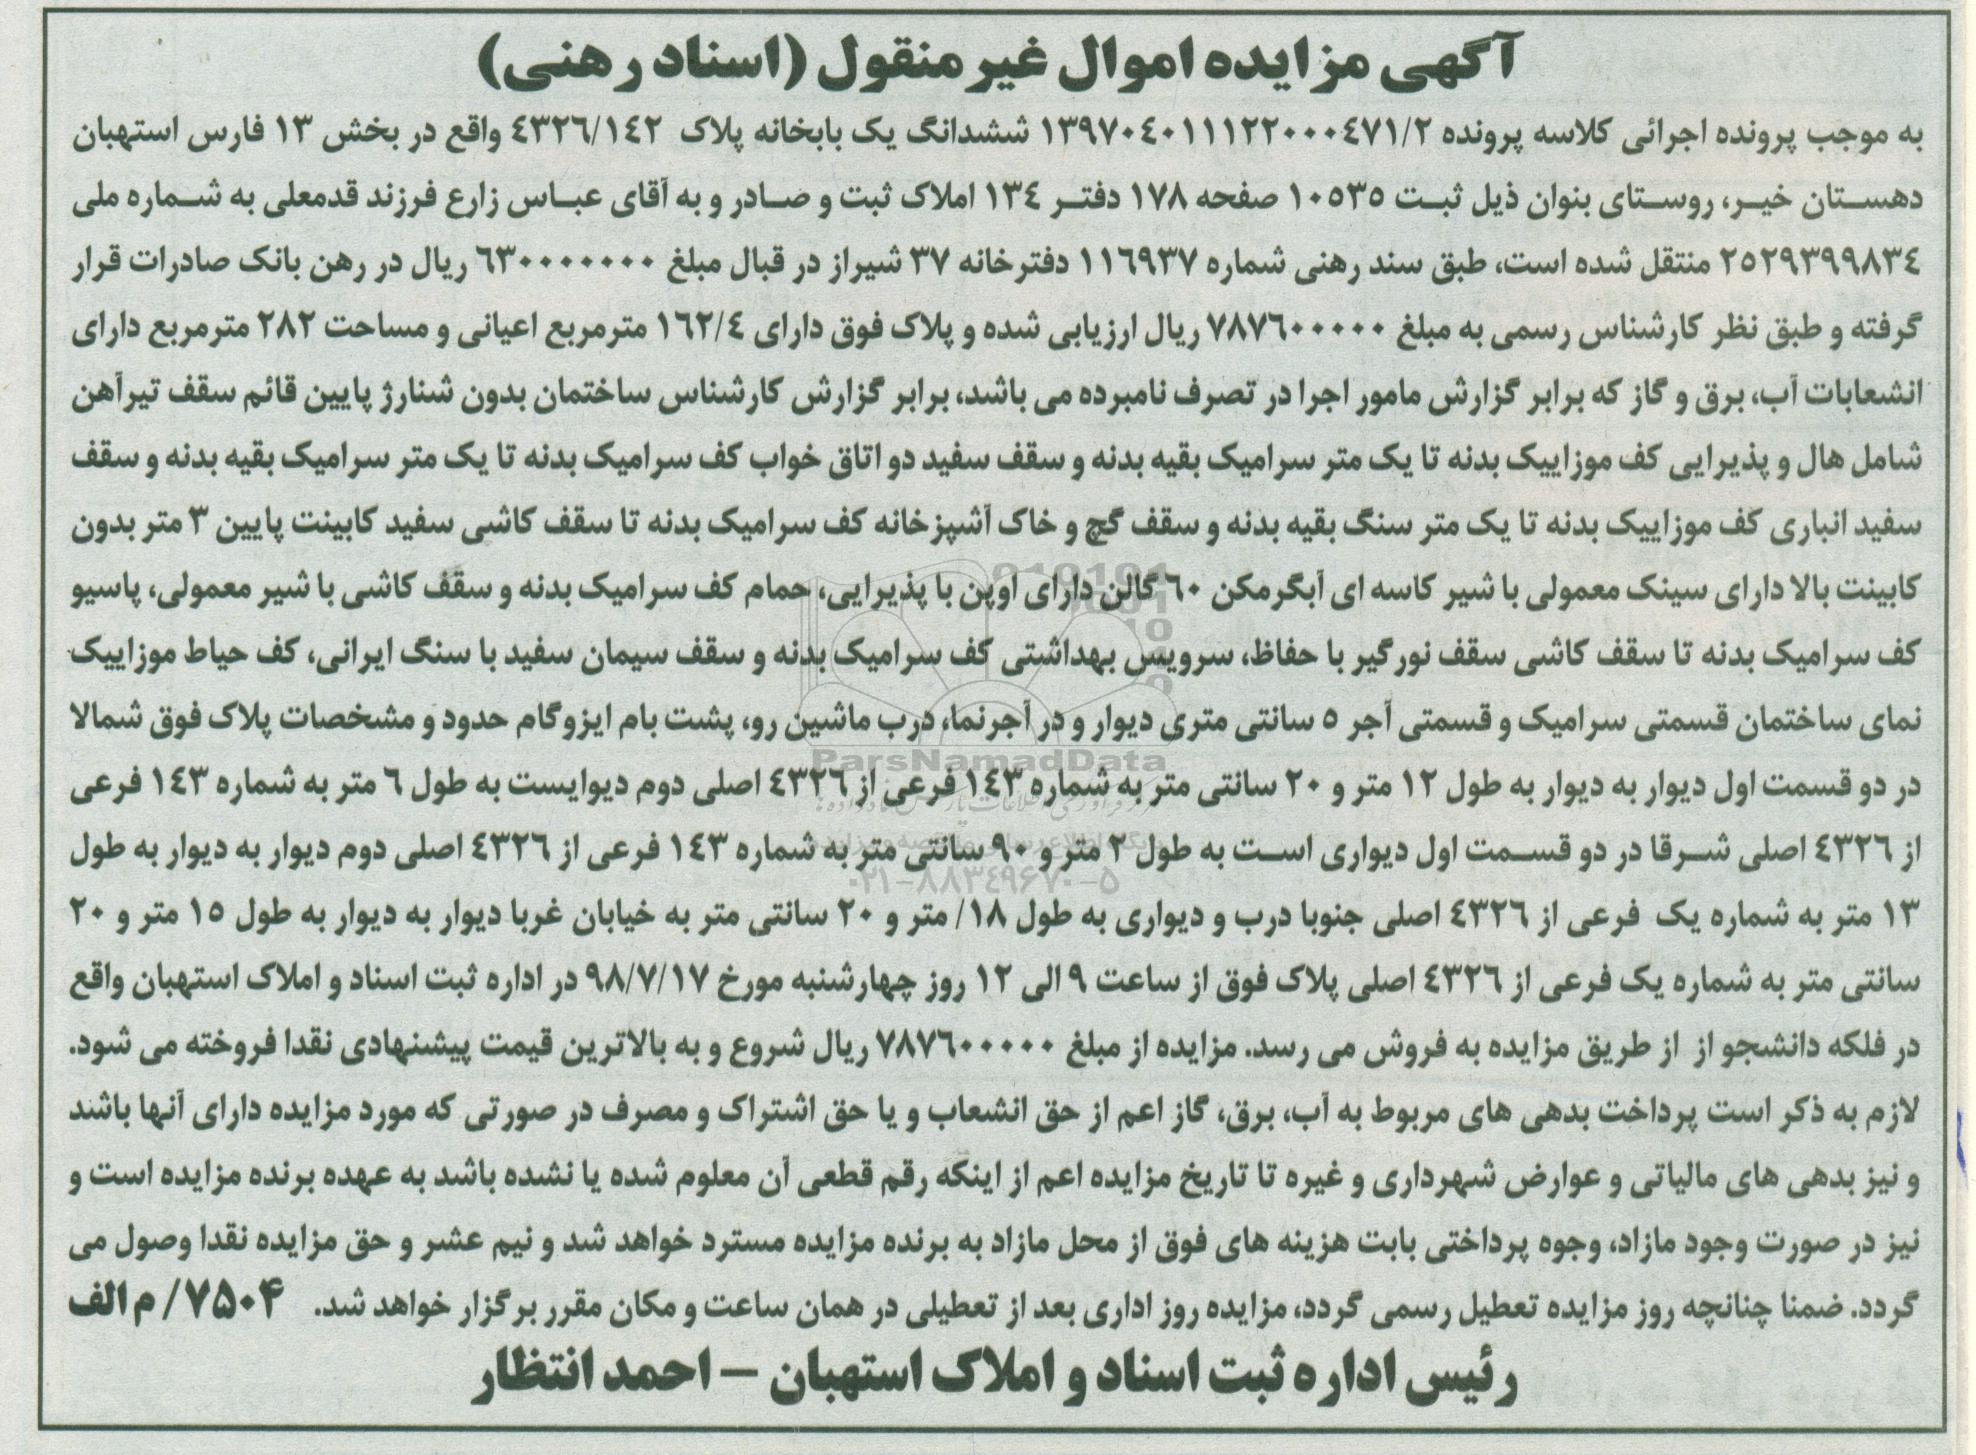 آگهی مزایده اموال غیر منقول (اسناد رهنی)
به موجب پرونده اجرائی کلاسه پرونده ۱۳۹۷۰٤۰۱۱۱۲۲۰۰۰٤۷۱/۲ ششدانگ یک بابخانه پلاک ٤۳۲٦/۱٤۲ واقع در بخش ۱۳ فارس استهبان
دهستان خیر، روستای بنوان ذیل ثبت ۱۰۵۳۵ صفحه ۱۷۸ دفتر ۱۳٤ املاک ثبت و صادر و به آقای عباس زارع فرزند قدمعلی به شماره ملی
۲۵۲۹۳۹۹۸۳٤ منتقل شده است، طبق سند رهنی شماره ۱۱٦۹۳۷ دفترخانه ۳۷ شیراز در قبال مبلغ ٦۳۰۰۰۰۰۰۰ ریال در رهن بانک صادرات قرار
گرفته و طبق نظر کارشناس رسمی به مبلغ ۷۸۷٦۰۰۰۰۰ ریال ارزیابی شده و پلاک فوق دارای ۱٦۲/٤ مترمربع اعیانی و مساحت ۲۸۲ مترمربع دارای
انشعابات آب، برق و گاز که برابر گزارش مامور اجرا در تصرف نامبرده می باشد، برابر گزارش کارشناس ساختمان بدون شنارژ پایین قائم سقف تیرآهن
شامل هال و پذیرایی کف موزاییک بدنه تا یک متر سرامیک بقیه بدنه و سقف سفید دو اتاق خواب کف سرامیک بدنه تا یک متر سرامیک بقیه بدنه و سقف
سفید انباری کف موزاییک بدنه تا یک متر سنگ بقیه بدنه و سقف گچ و خاک آشپزخانه کف سرامیک بدنه تا سقف کاشی سفید کابینت پایین ۳ متر بدون
کابینت بالا دارای سینک معمولی با شیر کاسه ای آبگرمکن ٦۰ گالن دارای اوپن با پذیرایی، حمام کف سرامیک بدنه و سقف کاشی با شیر معمولی، پاسیو
کف سرامیک بدنه تا سقف کاشی سقف نورگیر با حفاظ، سرویس بهداشتی کف سرامیک بدنه و سقف سیمان سفید با سنگ ایرانی، کف حیاط موزاییک
نمای ساختمان قسمتی سرامیک و قسمتی آجر ۵ سانتی متری دیوار و در آجرنما، درب ماشین رو، پشت بام ایزوگام حدود و مشخصات پلاک فوق شمالا
ParsNamadData
در دو قسمت اول دیوار به دیوار به طول ۱۲ متر و ۲۰ سانتی متر به شماره ۱٤۳ فرعی از ٤۳۲٦ اصلی دوم دیوایست به طول ٦ متر به شماره ۱٤۳ فرعی
از ٤۳۲٦ اصلی شرقا در دو قسمت اول دیواری است به طول ۲ متر و ۹۰ سانتی متر به شماره ۱٤۳ فرعی از ٤۳۲٦ اصلی دوم دیوار به دیوار به طول
۰۲۱-۸۸۳۴۹۶۷۰-۵
۱۳ متر به شماره یک فرعی از ٤۳۲٦ اصلی جنوبا درب و دیواری به طول ۱۸/ متر و ۲۰ سانتی متر به خیابان غربا دیوار به دیوار به طول ۱۵ متر و ۲۰
سانتی متر به شماره یک فرعی از ٤۳۲٦ اصلی پلاک فوق از ساعت ۹ الی ۱۲ روز چهارشنبه مورخ ۹۸/۷/۱۷ در اداره ثبت اسناد و املاک استهبان واقع
در فلکه دانشجو از از طریق مزایده به فروش می رسد. مزایده از مبلغ ۷۸۷٦۰۰۰۰۰ ریال شروع و به بالاترین قیمت پیشنهادی نقدا فروخته می شود.
لازم به ذکر است پرداخت بدهی های مربوط به آب، برق، گاز اعم از حق انشعاب و یا حق اشتراک و مصرف در صورتی که مورد مزایده دارای آنها باشند
و نیز بدهی های مالیاتی و عوارض شهرداری و غیره تا تاریخ مزایده اعم از اینکه رقم قطعی آن معلوم شده یا نشده باشد به عهده برنده مزایده است و
نیز در صورت وجود مازاد، وجوه پرداختی بابت هزینه های فوق از محل مازاد به برنده مزایده مسترد خواهد شد و نیم عشر و حق مزایده نقدا وصول می
گردد. ضمنا چنانچه روز مزایده تعطیل رسمی گردد، مزایده روز اداری بعد از تعطیلی در همان ساعت و مکان مقرر برگزار خواهد شد. ۷۵۰۴/ م الف
رئیس اداره ثبت اسناد و املاک استهبان – احمد انتظار